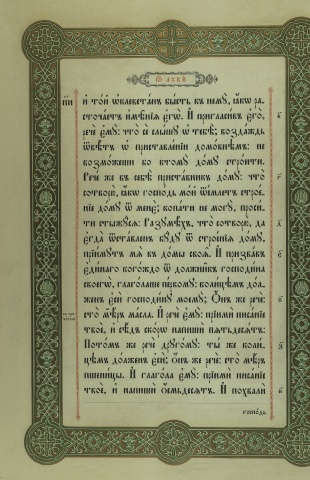 Ѿ лꙋкѝ
и҆ то́й ѡ҆клевета́нъ бы́сть къ немꙋ̀, ꙗ҆́кѡ рас-
точа́етъ и҆мѣ̑нїѧ є҆гѡ̀. И҆ пригласи́въ є҆го̀,
речѐ є҆мꙋ̀: что̀ сѐ слы́шꙋ ѡ҆ тебѣ̀; возда́ждь
ѿвѣ́тъ ѡ҆ приставле́нїи домо́внѣмъ: не
возмо́жеши бо ктомꙋ̀ до́мꙋ стро́ити.
Рече́ же въ себѣ̀ приста́вникъ до́мꙋ: что̀
сотворю̀, ꙗ҆́кѡ госпо́дь мо́й ѿе́млетъ строе́-
нїе до́мꙋ ѿ менє̀; копа́ти не могꙋ̀, проси́-
ти стыжꙋ́сѧ. Разꙋмѣ́хъ, что̀ сотворю̀, да
є҆гда̀ ѿста́вленъ бꙋ́дꙋ ѿ строе́нїѧ до́мꙋ,
прїи́мꙋтъ мѧ̀ въ до́мы своѧ̑. И҆ призва́въ
є҆ди́наго кого́ждо ѿ должни̑къ господи́на
своегѡ̀, глаго́лаше пе́рвомꙋ: коли́цѣмъ до́л-
женъ є҆сѝ господи́нꙋ моемꙋ̀; Ѻ҆́нъ же речѐ:
сто̀ мѣ́ръ ма́сла. И҆ речѐ є҆мꙋ̀: прїимѝ писа́нїе
твоѐ, и҆ сѣ́дъ ско́рѡ напишѝ пѧтьдесѧ́тъ.
Пото́мъ же речѐ дрꙋго́мꙋ: ты́ же коли́-
цѣмъ до́лженъ є҆сѝ; ѻ҆́нъ же речѐ: сто̀ мѣ́ръ
пшени́цы. И҆ глаго́ла є҆мꙋ̀: прїимѝ писа́нїе
твоѐ, и҆ напишѝ ѻ҆́смьдесѧтъ. И҆ похвалѝ
госпо́дь